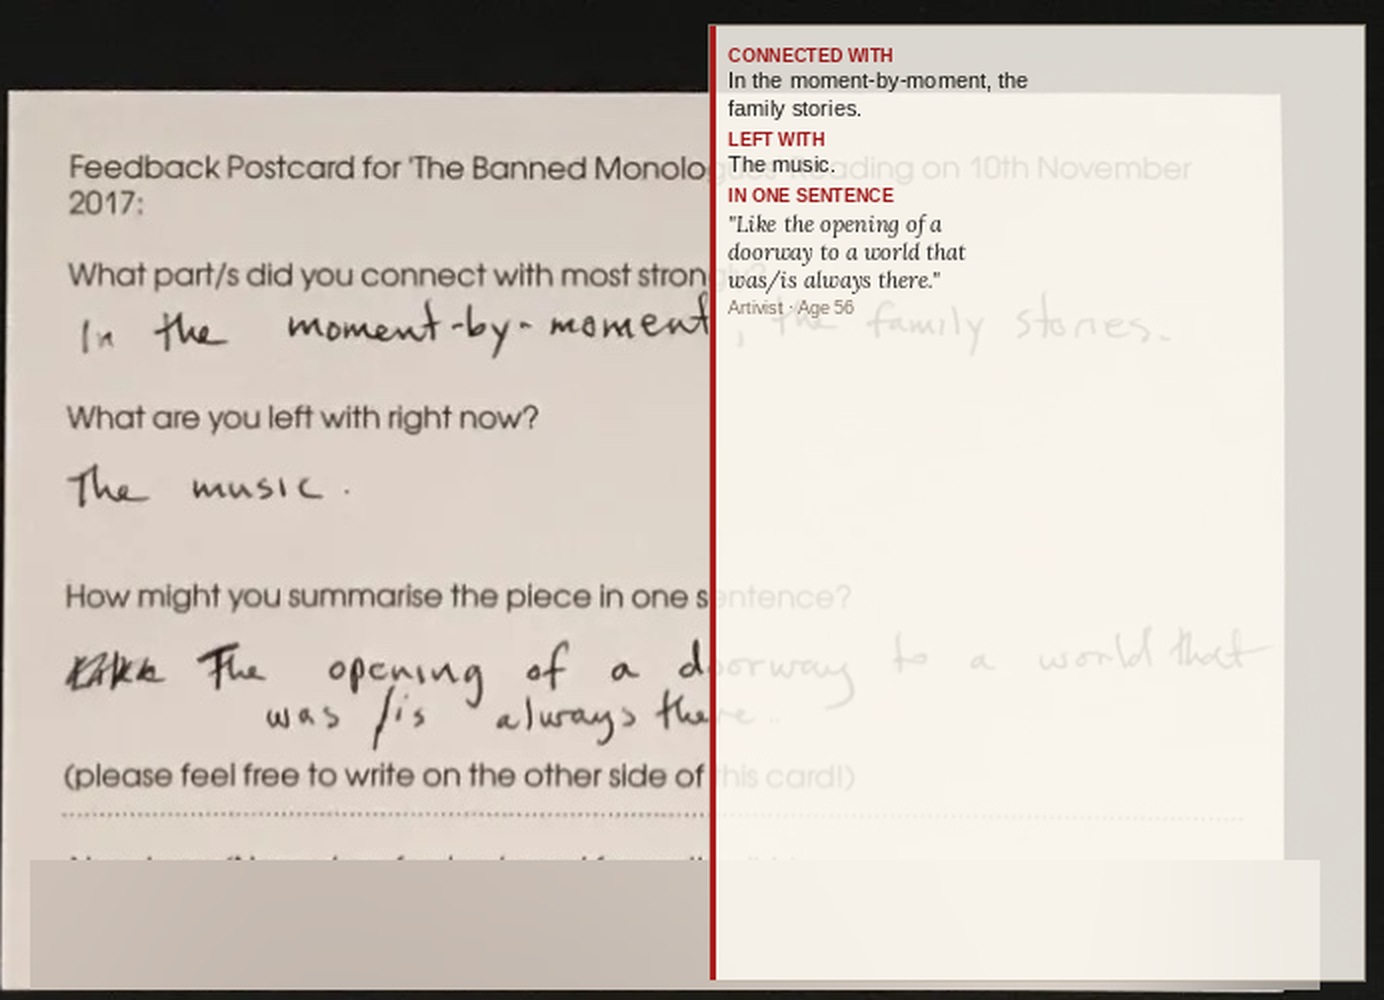 Feedback Postcard for 'The Banned Monologues' Reading on 10th November
2017:
What part/s did you connect with most strongly?
In the moment-by-moment, the family stories.
What are you left with right now?
The music.
How might you summarise the piece in one sentence?
The opening of a doorway to a world that
was/is always there..
(please feel free to write on the other side of this card!)
CONNECTED WITH
In the moment-by-moment, the
family stories.
LEFT WITH
The music.
IN ONE SENTENCE
"Like the opening of a
doorway to a world that
was/is always there."
Artivist · Age 56